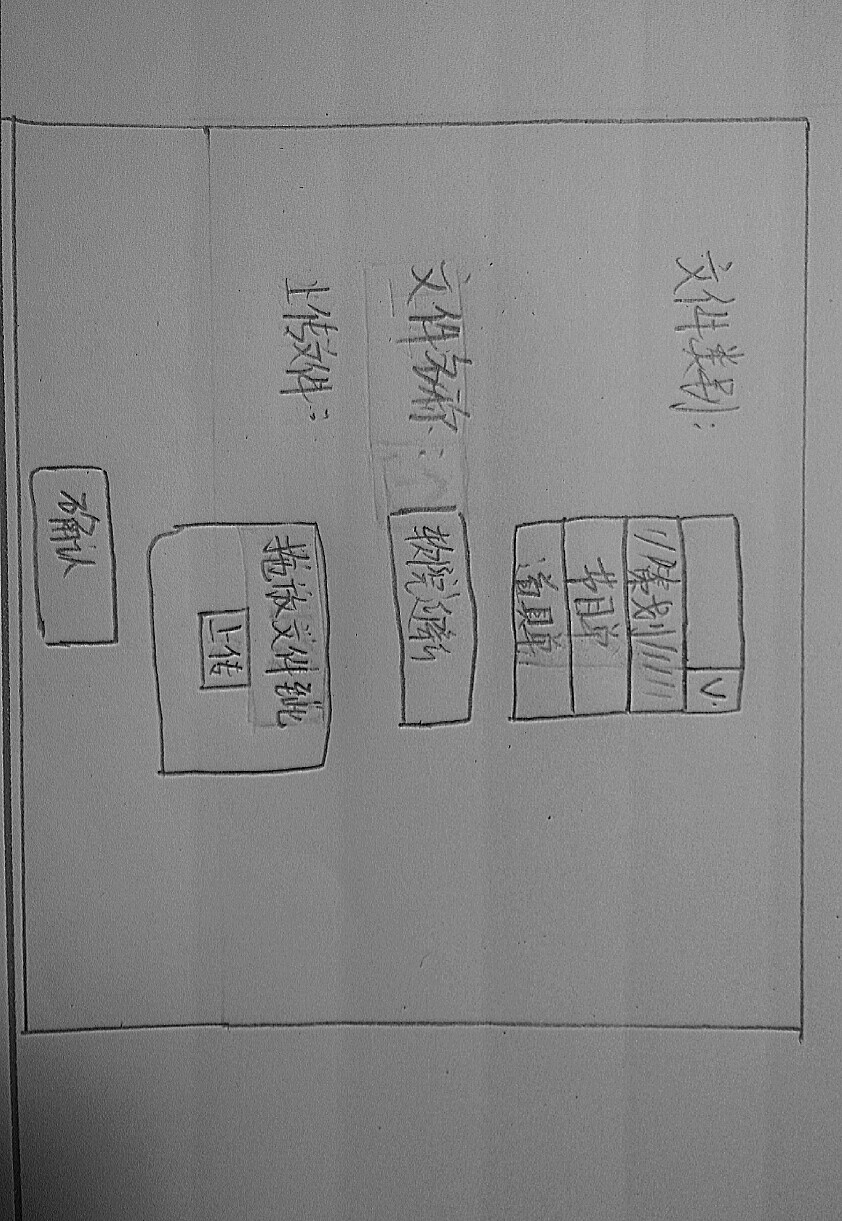 文件类别：
V
策划
节目单
道具单
文件名称：
软院迎新
上传文件：
拖放文件到此
上传
确认